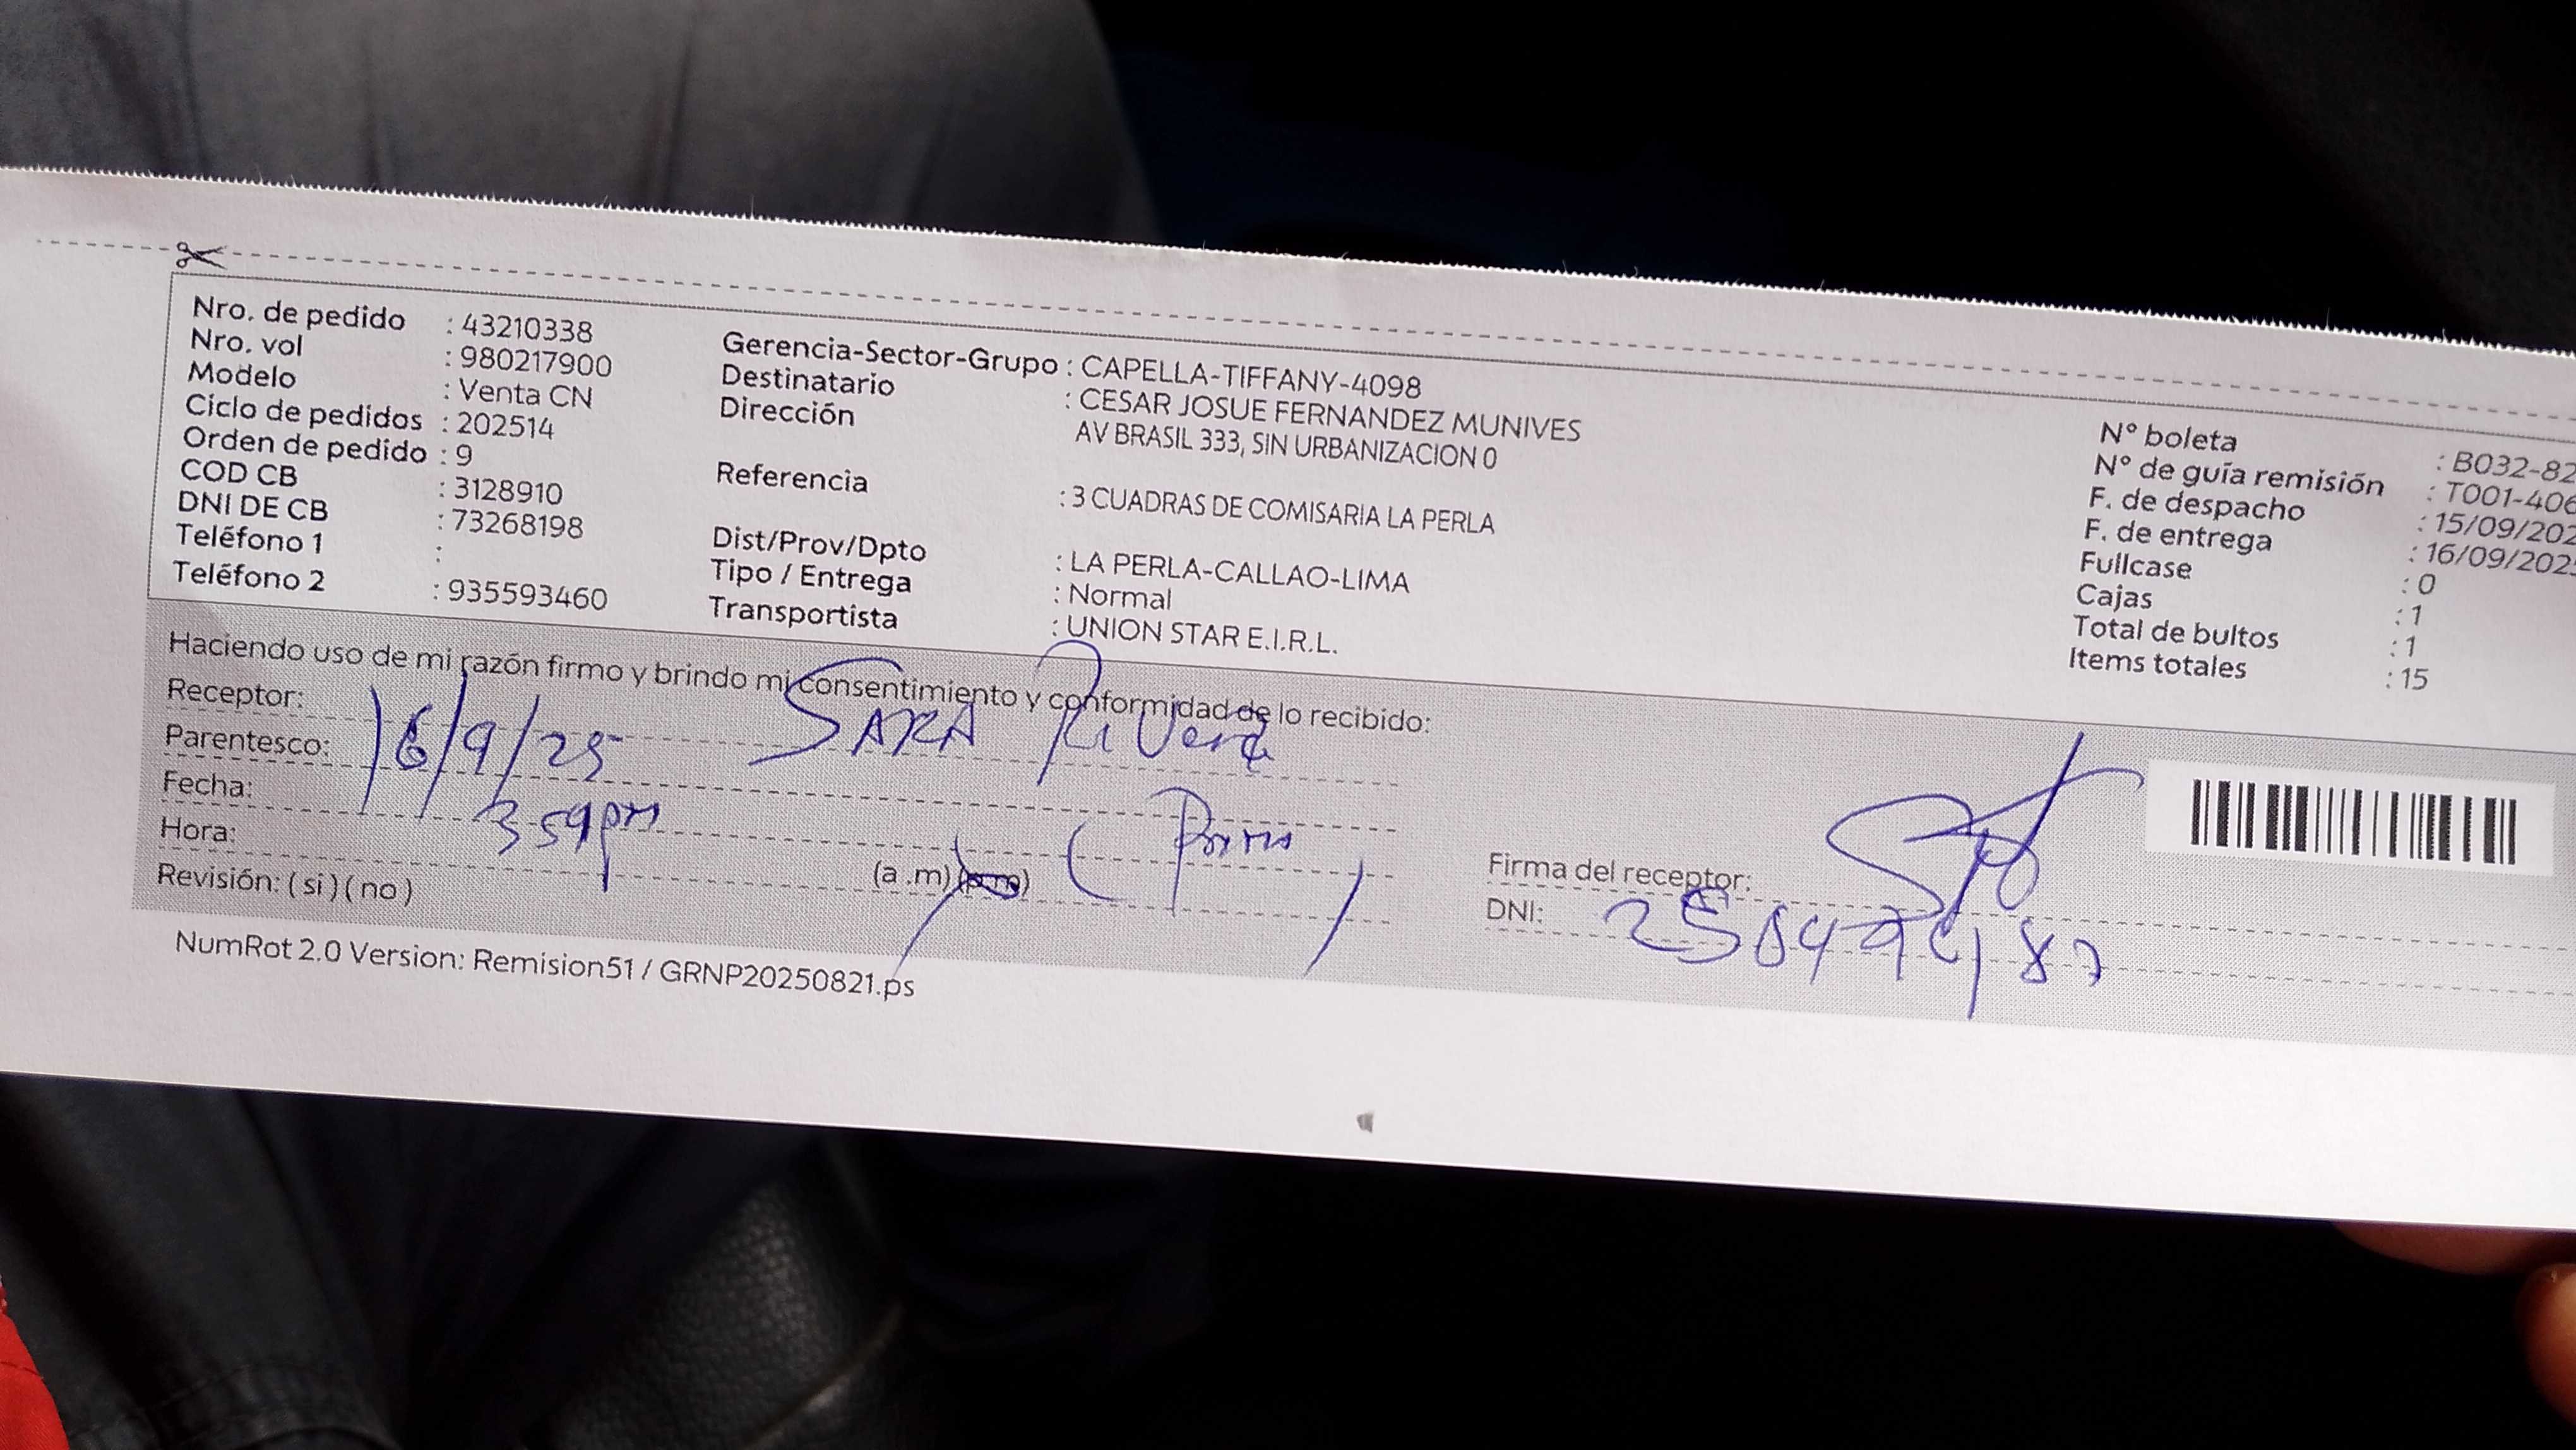 Nro. de pedido : 43210338
Nro. vol : 980217900
Modelo : Venta CN
Ciclo de pedidos : 202514
Orden de pedido : 9
COD CB : 3128910
DNI DE CB : 73268198
Teléfono 1 :
Teléfono 2 : 935593460
Gerencia-Sector-Grupo : CAPELLA-TIFFANY-4098
Destinatario : CESAR JOSUE FERNANDEZ MUNIVES
Dirección AV BRASIL 333, SIN URBANIZACION 0
Referencia : 3 CUADRAS DE COMISARIA LA PERLA
Dist/Prov/Dpto : LA PERLA-CALLAO-LIMA
Tipo / Entrega : Normal
Transportista : UNION STAR E.I.R.L.
N° boleta : B032-82
N° de guía remisión : T001-406
F. de despacho : 15/09/202
F. de entrega : 16/09/2025
Fullcase : 0
Cajas : 1
Total de bultos : 1
Items totales : 15
Haciendo uso de mi razón firmo y brindo mi consentimiento y conformidad de lo recibido:
Receptor: SARA Rivera
Parentesco: 16/9/25
Fecha: 359pm
Hora: (a .m)
Revisión: ( si ) ( no )
Firma del receptor:
DNI:
NumRot 2.0 Version: Remision51 / GRNP20250821.ps